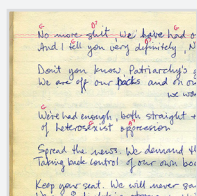 G D7 G
No more shit. We have had e
And I tell you very definitely, N
Don't you know Patriarchy's g
We are off our backs and on ou
we wo
G
We've had enough, both straight +
of heterosexist oppression
Spread the news. We demand th
Taking back control of our own bod
Keep your seat. We will never go